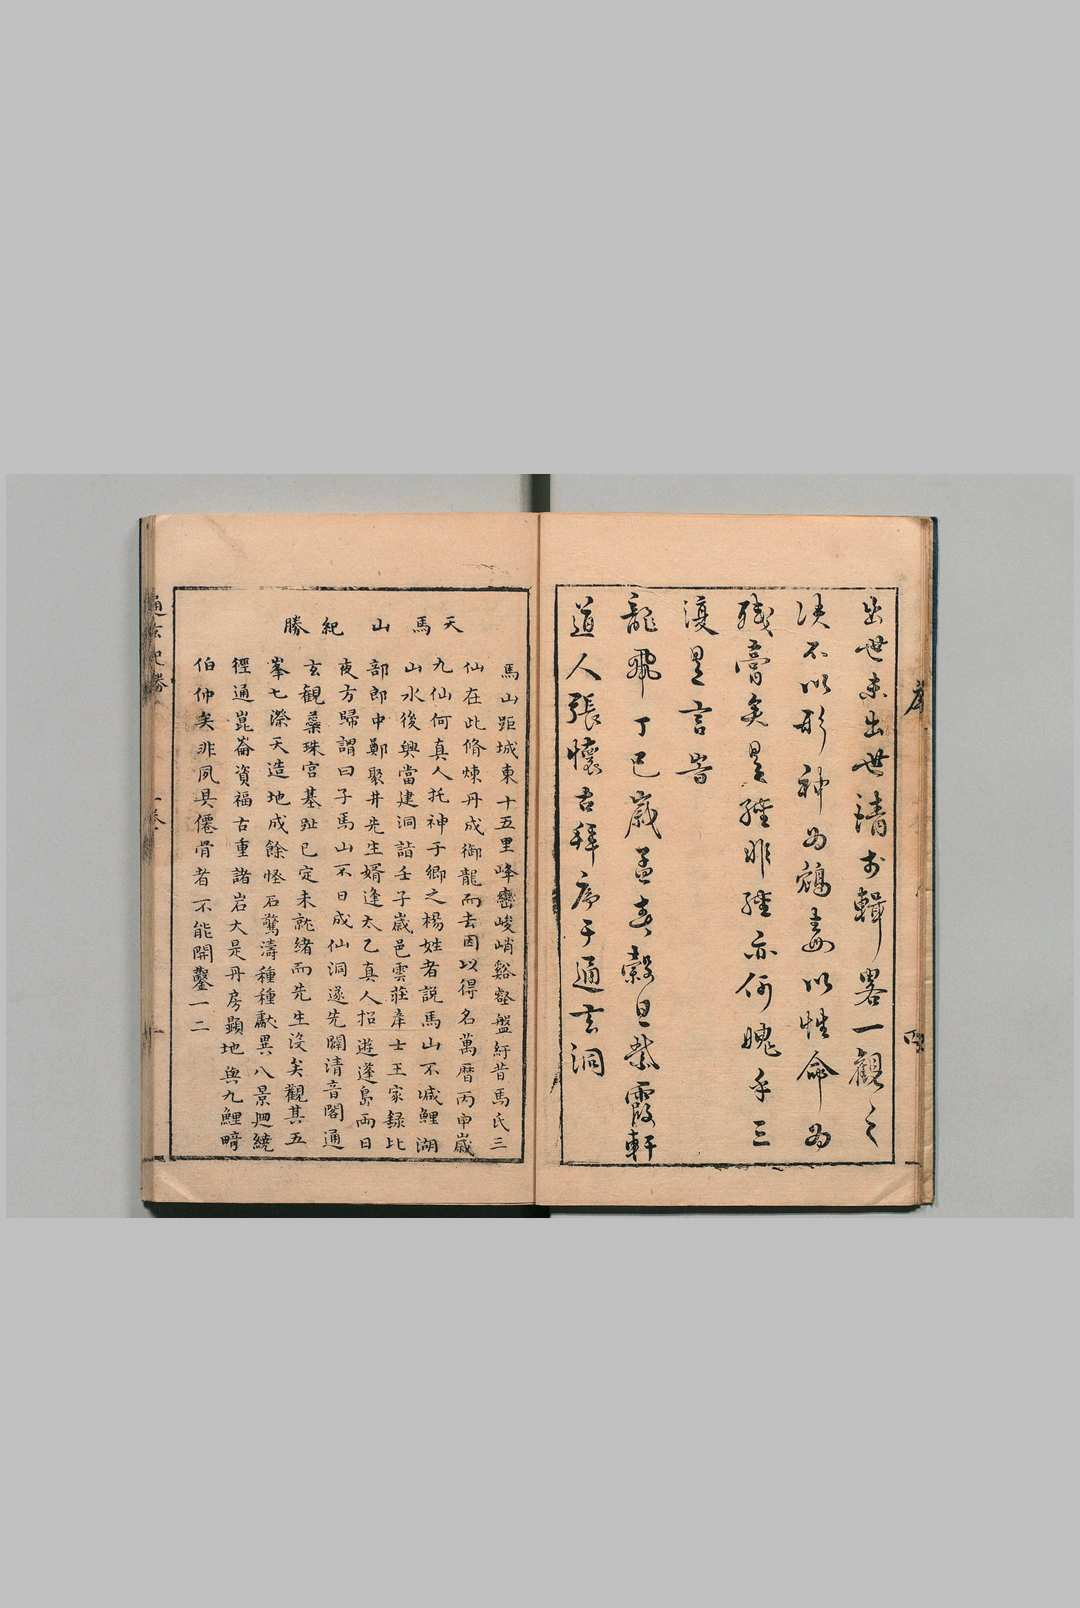 出世未出世請於輯畧一觀之
決不以形神為
殘膏矣是經非經亦何愧乎三
復是言哉
龍飛丁巳歲孟春穀旦紫霞軒
道人張懷古拜序于通玄洞
天馬山紀勝
馬山距城東十五里峰巒峻峭谿壑盤紆昔馬氏三
仙在此脩煉丹成御龍而去因以得名萬曆丙申歲
九仙何真人托神于鄉之楊姓者說馬山不減鯉湖
山水後興當建洞詣壬子歲邑雲莊庠士王家録比
部郎中鄭聚井先生婿逢太乙真人招遊蓬島兩日
夜方歸謂曰子馬山不日成仙洞遂先闢清音閣通
玄觀蘂珠宮基趾已定未就緒而先生沒矣觀其五
峯七漈天造地成餘怪石驚濤種種獻異八景廻繞
徑通崑崙資福古重諸岩大是丹房顯地與九鯉疇
伯仲矣非夙具僊骨者不能開鑿一二
通玄紀勝